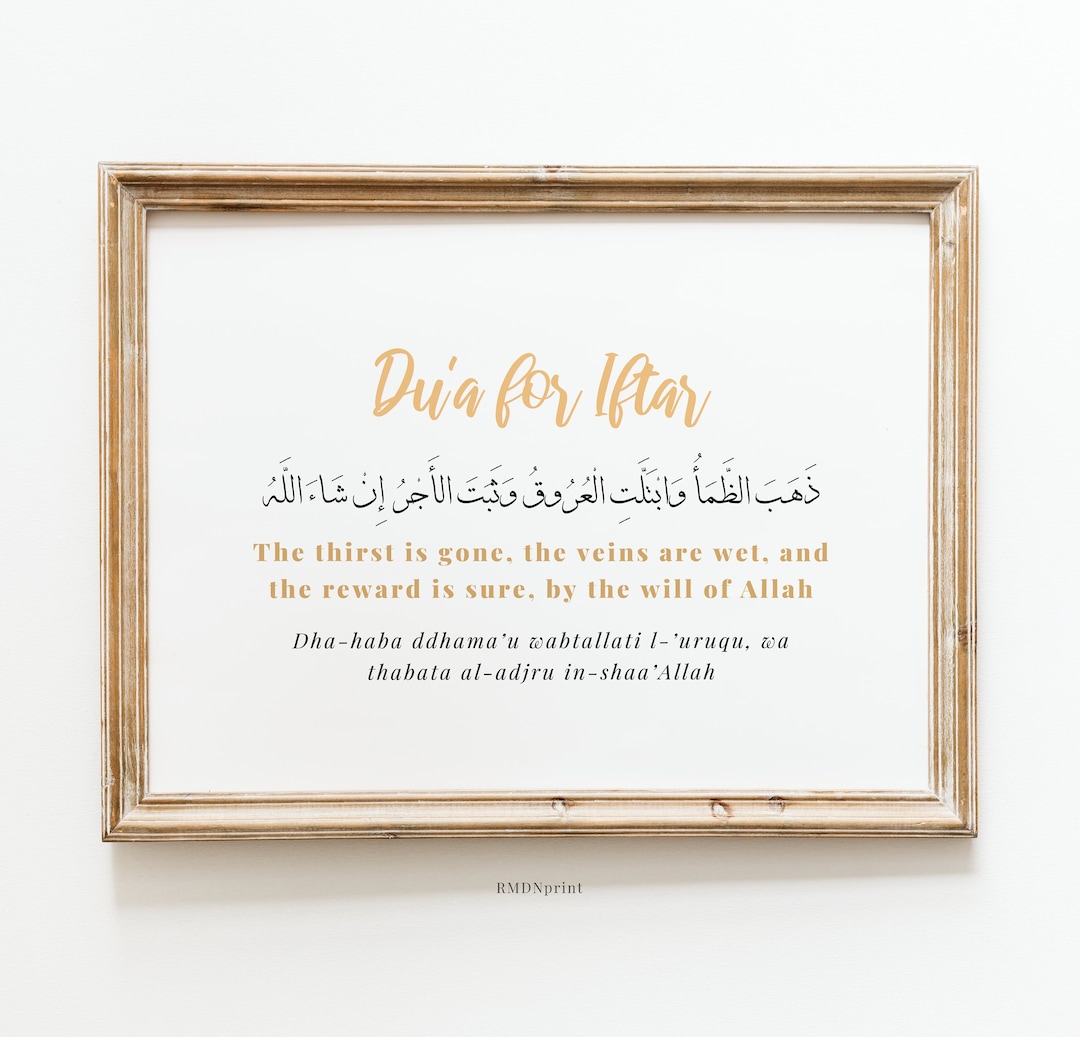 Du'a for Iftar
ذَهَبَ الظَّمَأُ وَابْتَلَّتِ الْعُرُوقُ وَثَبَتَ الأَجْرُ إِنْ شَاءَ اللَّهُ
The thirst is gone, the veins are wet, and
the reward is sure, by the will of Allah
Dha-haba ddhama’u wabtallati l-’uruqu, wa
thabata al-adjru in-shaa’Allah
RMDNprint